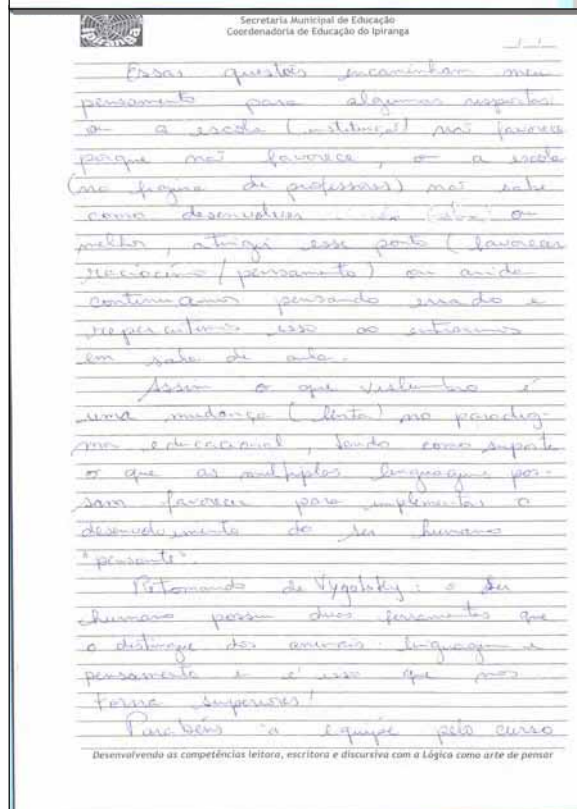 Ipiranga
Secretaria Municipal de Educação
Coordenadoria de Educação do Ipiranga
__/__/__
Essas questões encaminham meu
pensamento para algumas respostas:
ou a escola (instituição) não favorece
porque não favorece, ou a escola
(na figura de professores) não sabe
como desenvolver ou
melhor, atingir esse ponto (favorecer
raciocínio / pensamento) ou ainda
continuamos pensando errado e
repercutimos isso ao entrarmos
em sala de aula.
Assim o que vislumbro é
uma mudança (lenta) no paradig-
ma educacional, tendo como suporte
o que as múltiplas linguagens pos-
sam favorecer para implementar o
desenvolvimento do ser humano
"pensante".
Retomando de Vygotsky: o ser
humano possui duas ferramentas que
o distingue dos animais: linguagem e
pensamento e é isso que nos
torna superiores!
Parabéns à equipe pelo curso
Desenvolvendo as competências leitora, escritora e discursiva com a Lógica como arte de pensar